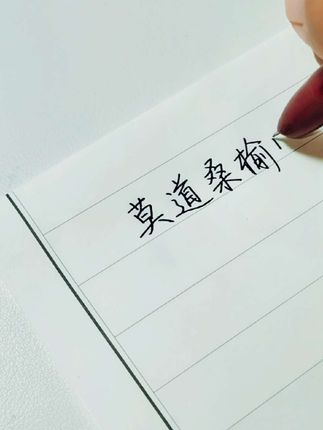 莫道桑榆